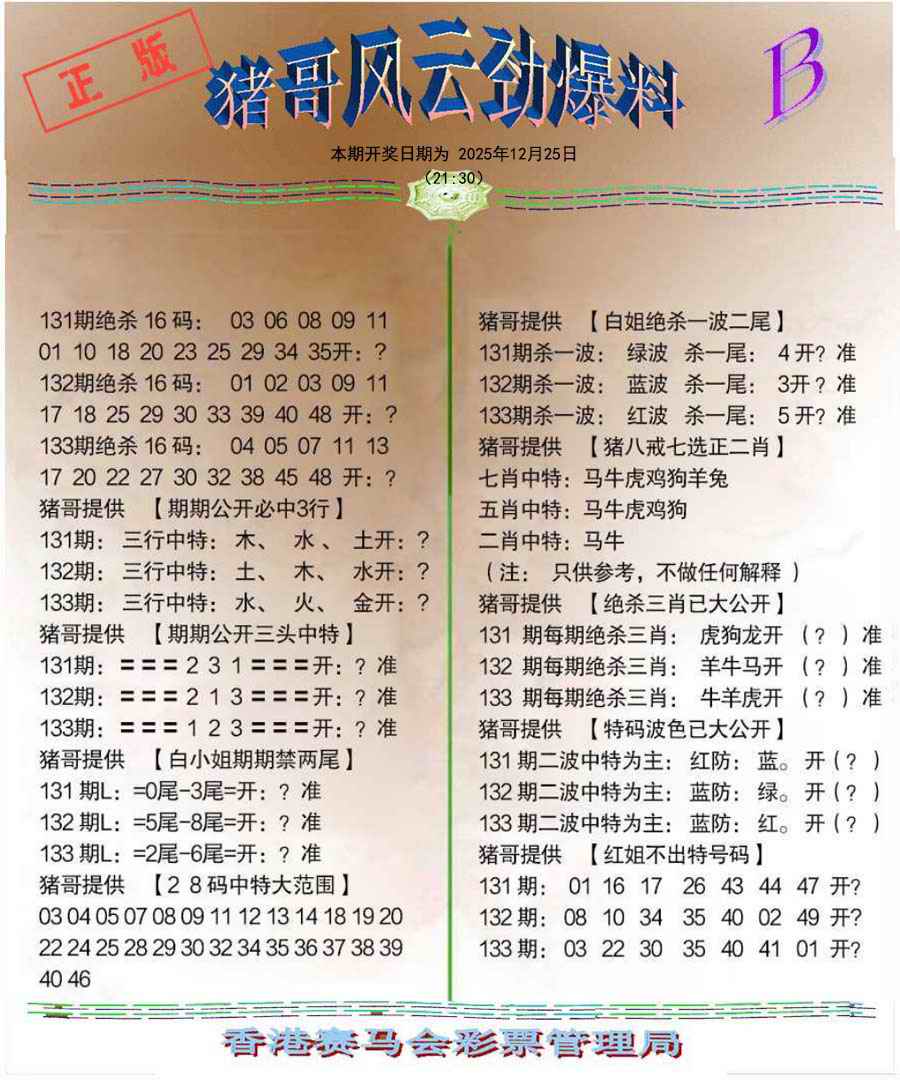 正版
猪哥风云劲爆料
B
本期开奖日期为 2025年12月25日
(21:30)
131期绝杀 16 码： 03 06 08 09 11
01 10 18 20 23 25 29 34 35开：?
132期绝杀 16 码： 01 02 03 09 11
17 18 25 29 30 33 39 40 48 开：?
133期绝杀 16 码： 04 05 07 11 13
17 20 22 27 30 32 38 45 48 开：?
猪哥提供 【期期公开必中3行】
131期： 三行中特： 木、 水、 土开：?
132期： 三行中特： 土、 木、 水开：?
133期： 三行中特： 水、 火、 金开：?
猪哥提供 【期期公开三头中特】
131期：=== 2 3 1 ===开：? 准
132期：=== 2 1 3 ===开：? 准
133期：=== 1 2 3 ===开：? 准
猪哥提供 【白小姐期期禁两尾】
131 期L：=0尾-3尾=开：? 准
132 期L：=5尾-8尾=开：? 准
133 期L：=2尾-6尾=开：? 准
猪哥提供 【2 8 码中特大范围】
03 04 05 07 08 09 11 12 13 14 18 19 20
22 24 25 28 29 30 32 34 35 36 37 38 39
40 46
猪哥提供 【白姐绝杀一波二尾】
131期杀一波： 绿波 杀一尾： 4 开? 准
132期杀一波： 蓝波 杀一尾： 3开 ? 准
133期杀一波： 红波 杀一尾： 5 开? 准
猪哥提供 【猪八戒七选正二肖】
七肖中特：马牛虎鸡狗羊兔
五肖中特：马牛虎鸡狗
二肖中特：马牛
（注： 只供参考，不做任何解释 ）
猪哥提供 【绝杀三肖已大公开】
131 期每期绝杀三肖： 虎狗龙开 （? ）准
132 期每期绝杀三肖： 羊牛马开 （? ）准
133 期每期绝杀三肖： 牛羊虎开 （? ）准
猪哥提供 【特码波色已大公开】
131 期二波中特为主： 红防： 蓝。 开（? ）
132 期二波中特为主： 蓝防： 绿。 开（? ）
133 期二波中特为主： 蓝防： 红。 开（? ）
猪哥提供 【红姐不出特号码】
131 期： 01 16 17 26 43 44 47 开?
132 期： 08 10 34 35 40 02 49 开?
133 期： 03 22 30 35 40 41 01 开?
香港赛马会彩票管理局